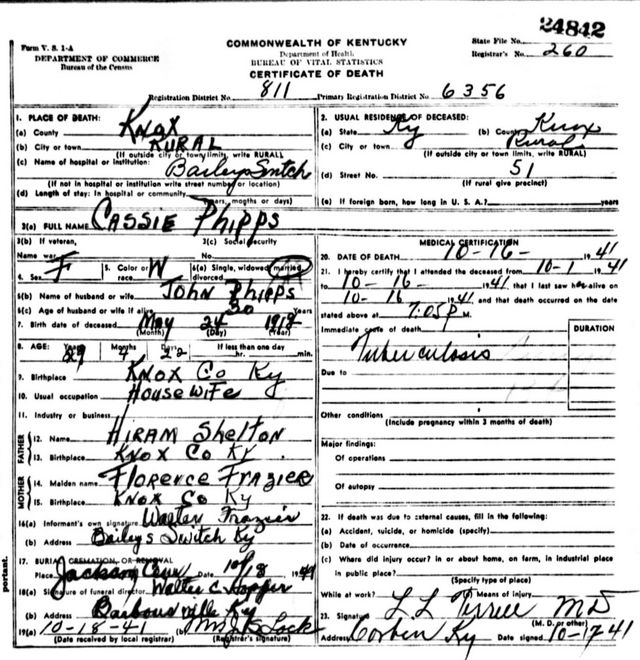 24842
Form V. S. 1-A
DEPARTMENT OF COMMERCE
Bureau of the Census
COMMONWEALTH OF KENTUCKY
Department of Health
BUREAU OF VITAL STATISTICS
CERTIFICATE OF DEATH
State File No.
Registrar's No. 260
Registration District No. 811 Primary Registration District No. 6356
1. PLACE OF DEATH:
(a) County Knox
(b) City or town RURAL
(If outside city or town limits, write RURAL)
(c) Name of hospital or institution: Baileys Switch
(If not in hospital or institution write street number or location)
(d) Length of stay: In hospital or community
years, months or days)
2. USUAL RESIDENCE OF DECEASED:
(a) State Ky (b) County Knox
(c) City or town Rural
(If outside city or town limits, write RURAL)
(d) Street No. 51
(If rural give precinct)
(e) If foreign born, how long in U. S. A.? years
3(a) FULL NAME CASSIE Phipps
3(b) If veteran, 3(c) Social Security
Name war No.
4. Sex F 5. Color or race W 6(a) Single, widowed, married, divorced
6(b) Name of husband or wife John Phipps
6(c) Age of husband or wife if alive 30 Years
7. Birth date of deceased May 24 1912
(Month) (Day) (Year)
8. AGE: Years 29 Months 4 Days 22 If less than one day
hr. min.
9. Birthplace Knox Co Ky
10. Usual occupation Housewife
11. Industry or business
FATHER
12. Name Hiram Shelton
13. Birthplace Knox Co Ky.
MOTHER
14. Maiden name Florence Frazier
15. Birthplace Knox Co Ky
16(a) Informant's own signature Walter Frazier
(b) Address Baileys Switch Ky
17. BURIAL, CREMATION, OR REMOVAL
Place Jackson Cem Date 10/18 19
18(a) Signature of funeral director Walter C. Hopper
(b) Address Barbourville Ky
19(a) 10-18-41 (b) Mrs J B Lock
(Date received by local registrar) (Registrar's signature)
MEDICAL CERTIFICATION
20. DATE OF DEATH 10-16- 1941
21. I hereby certify that I attended the deceased from 10-1 1941
to 10-16- 1941 that I last saw her alive on
10-16 1941 and that death occurred on the date
stated above at 7:05 P M.
Immediate cause of death DURATION
Tuberculosis
Due to
Other conditions
(Include pregnancy within 3 months of death)
Major findings:
Of operations
Of autopsy
22. If death was due to external causes, fill in the following:
(a) Accident, suicide, or homicide (specify)
(b) Date of occurrence
(c) Where did injury occur? in or about home, on farm, in industrial place
in public place?
(Specify type of place)
While at work? Means of injury
23. Signature L L Terrell MD
(M. D. or other)
Address Corbin Ky Date signed 10-17-41
portant.